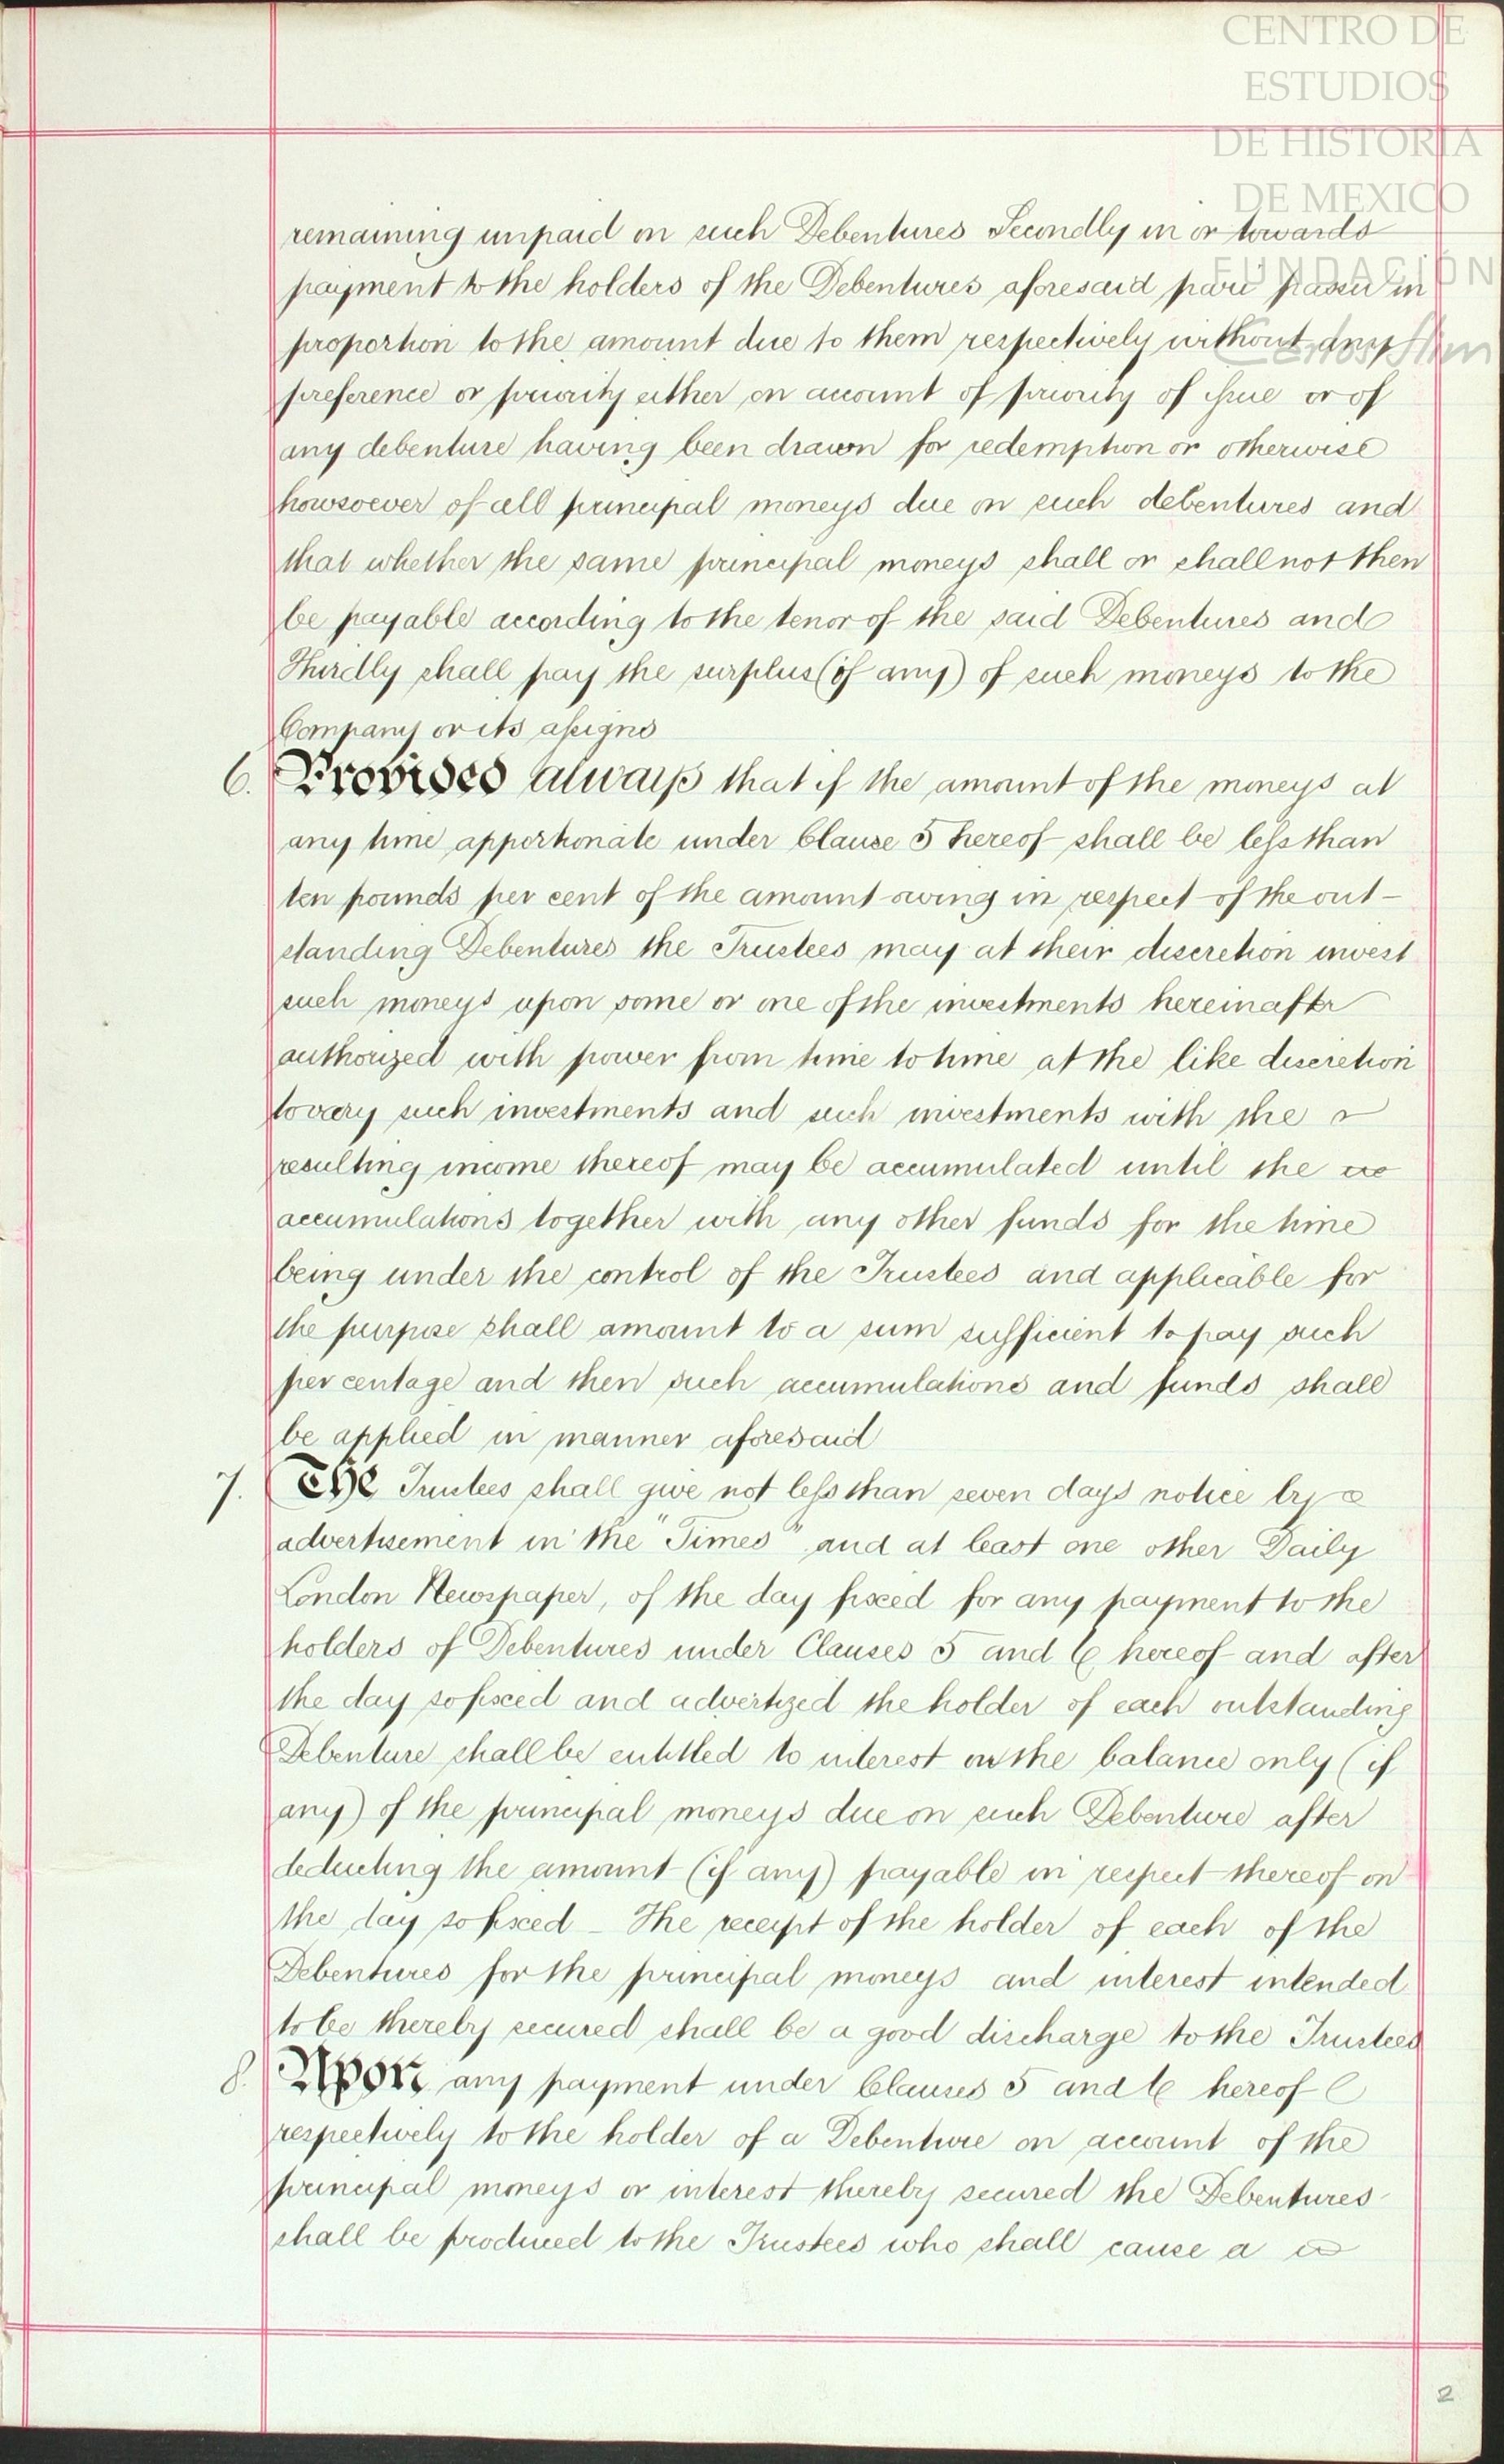 CENTRO DE
ESTUDIOS
DE HISTORIA
DE MEXICO
FUNDACIÓN
Carlos Slim
remaining unpaid on such Debentures Secondly in or towards
payment to the holders of the Debentures aforesaid pari passu in
proportion to the amount due to them respectively without any
preference or priority either on account of priority of issue or of
any debenture having been drawn for redemption or otherwise
howsoever of all principal moneys due on such debentures and
that whether the same principal moneys shall or shall not then
be payable according to the tenor of the said Debentures and
Thirdly shall pay the surplus (if any) of such moneys to the
Company or its assigns
6. Provided always that if the amount of the moneys at
any time apportionate under Clause 5 hereof shall be less than
ten pounds per cent of the amount owing in respect of the out-
standing Debentures the Trustees may at their discretion invest
such moneys upon some or one of the investments hereinafter
authorized with power from time to time at the like discretion
to vary such investments and such investments with the
resulting income thereof may be accumulated until the
accumulations together with any other funds for the time
being under the control of the Trustees and applicable for
the purpose shall amount to a sum sufficient to pay such
per centage and then such accumulations and funds shall
be applied in manner aforesaid
7. The Trustees shall give not less than seven days notice by
advertisement in the "Times" and at least one other Daily
London Newspaper, of the day fixed for any payment to the
holders of Debentures under Clauses 5 and 6 hereof and after
the day so fixed and advertized the holder of each outstanding
Debenture shall be entitled to interest on the balance only (if
any) of the principal moneys due on such Debenture after
deducting the amount (if any) payable in respect thereof on
the day so fixed - The receipt of the holder of each of the
Debentures for the principal moneys and interest intended
to be thereby secured shall be a good discharge to the Trustees
8. Upon any payment under Clauses 5 and 6 hereof
respectively to the holder of a Debenture on account of the
principal moneys or interest thereby secured the Debentures
shall be produced to the Trustees who shall cause a
2